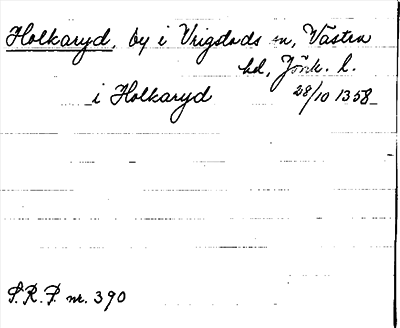 Holkaryd, by i Vrigstads sn, Västra
hd, Jönk. l.
i Holkaryd 28/10 1358
S.R.P. nr. 390